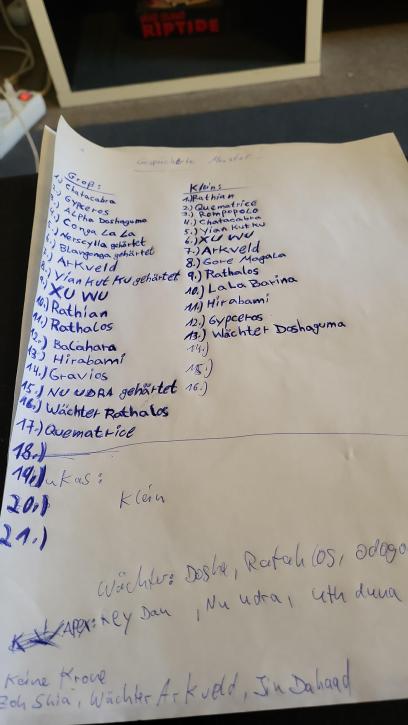 RIPTIDE
Gespeicherte Monster
Groß:
1.) Chatacabra
2.) Gypceros
3.) Alpha Doshaguma
4.) Conga La La
5.) Nerscylla gehärtet
6.) Blangonga gehärtet
7.) Arkveld
8.) Yian Kut Ku gehärtet
9.) XU WU
10.) Rathian
11.) Rathalos
12.) Balahara
13.) Hirabami
14.) Gravios
15.) NU UDRA gehärtet
16.) Wächter Rathalos
17.) Quematrice
18.)
19.)
20.)
21.)
Klein:
1.) Rathian
2.) Quematrice
3.) Rompopolo
4.) Chatacabra
5.) Yian Kut Ku
6.) XU WU
7.) Arkveld
8.) Gore Magala
9.) Rathalos
10.) LaLa Barina
11.) Hirabami
12.) Gypceros
13.) Wächter Doshaguma
14.)
15.)
16.)
ukas:
Klein
Wächter: Dosha, Ratah los, odogo
Apex: Rey Dau, Nu udra, uth duna
Keine Krone
Zoh Shia, Wächter Arkveld, Jin Dahaad